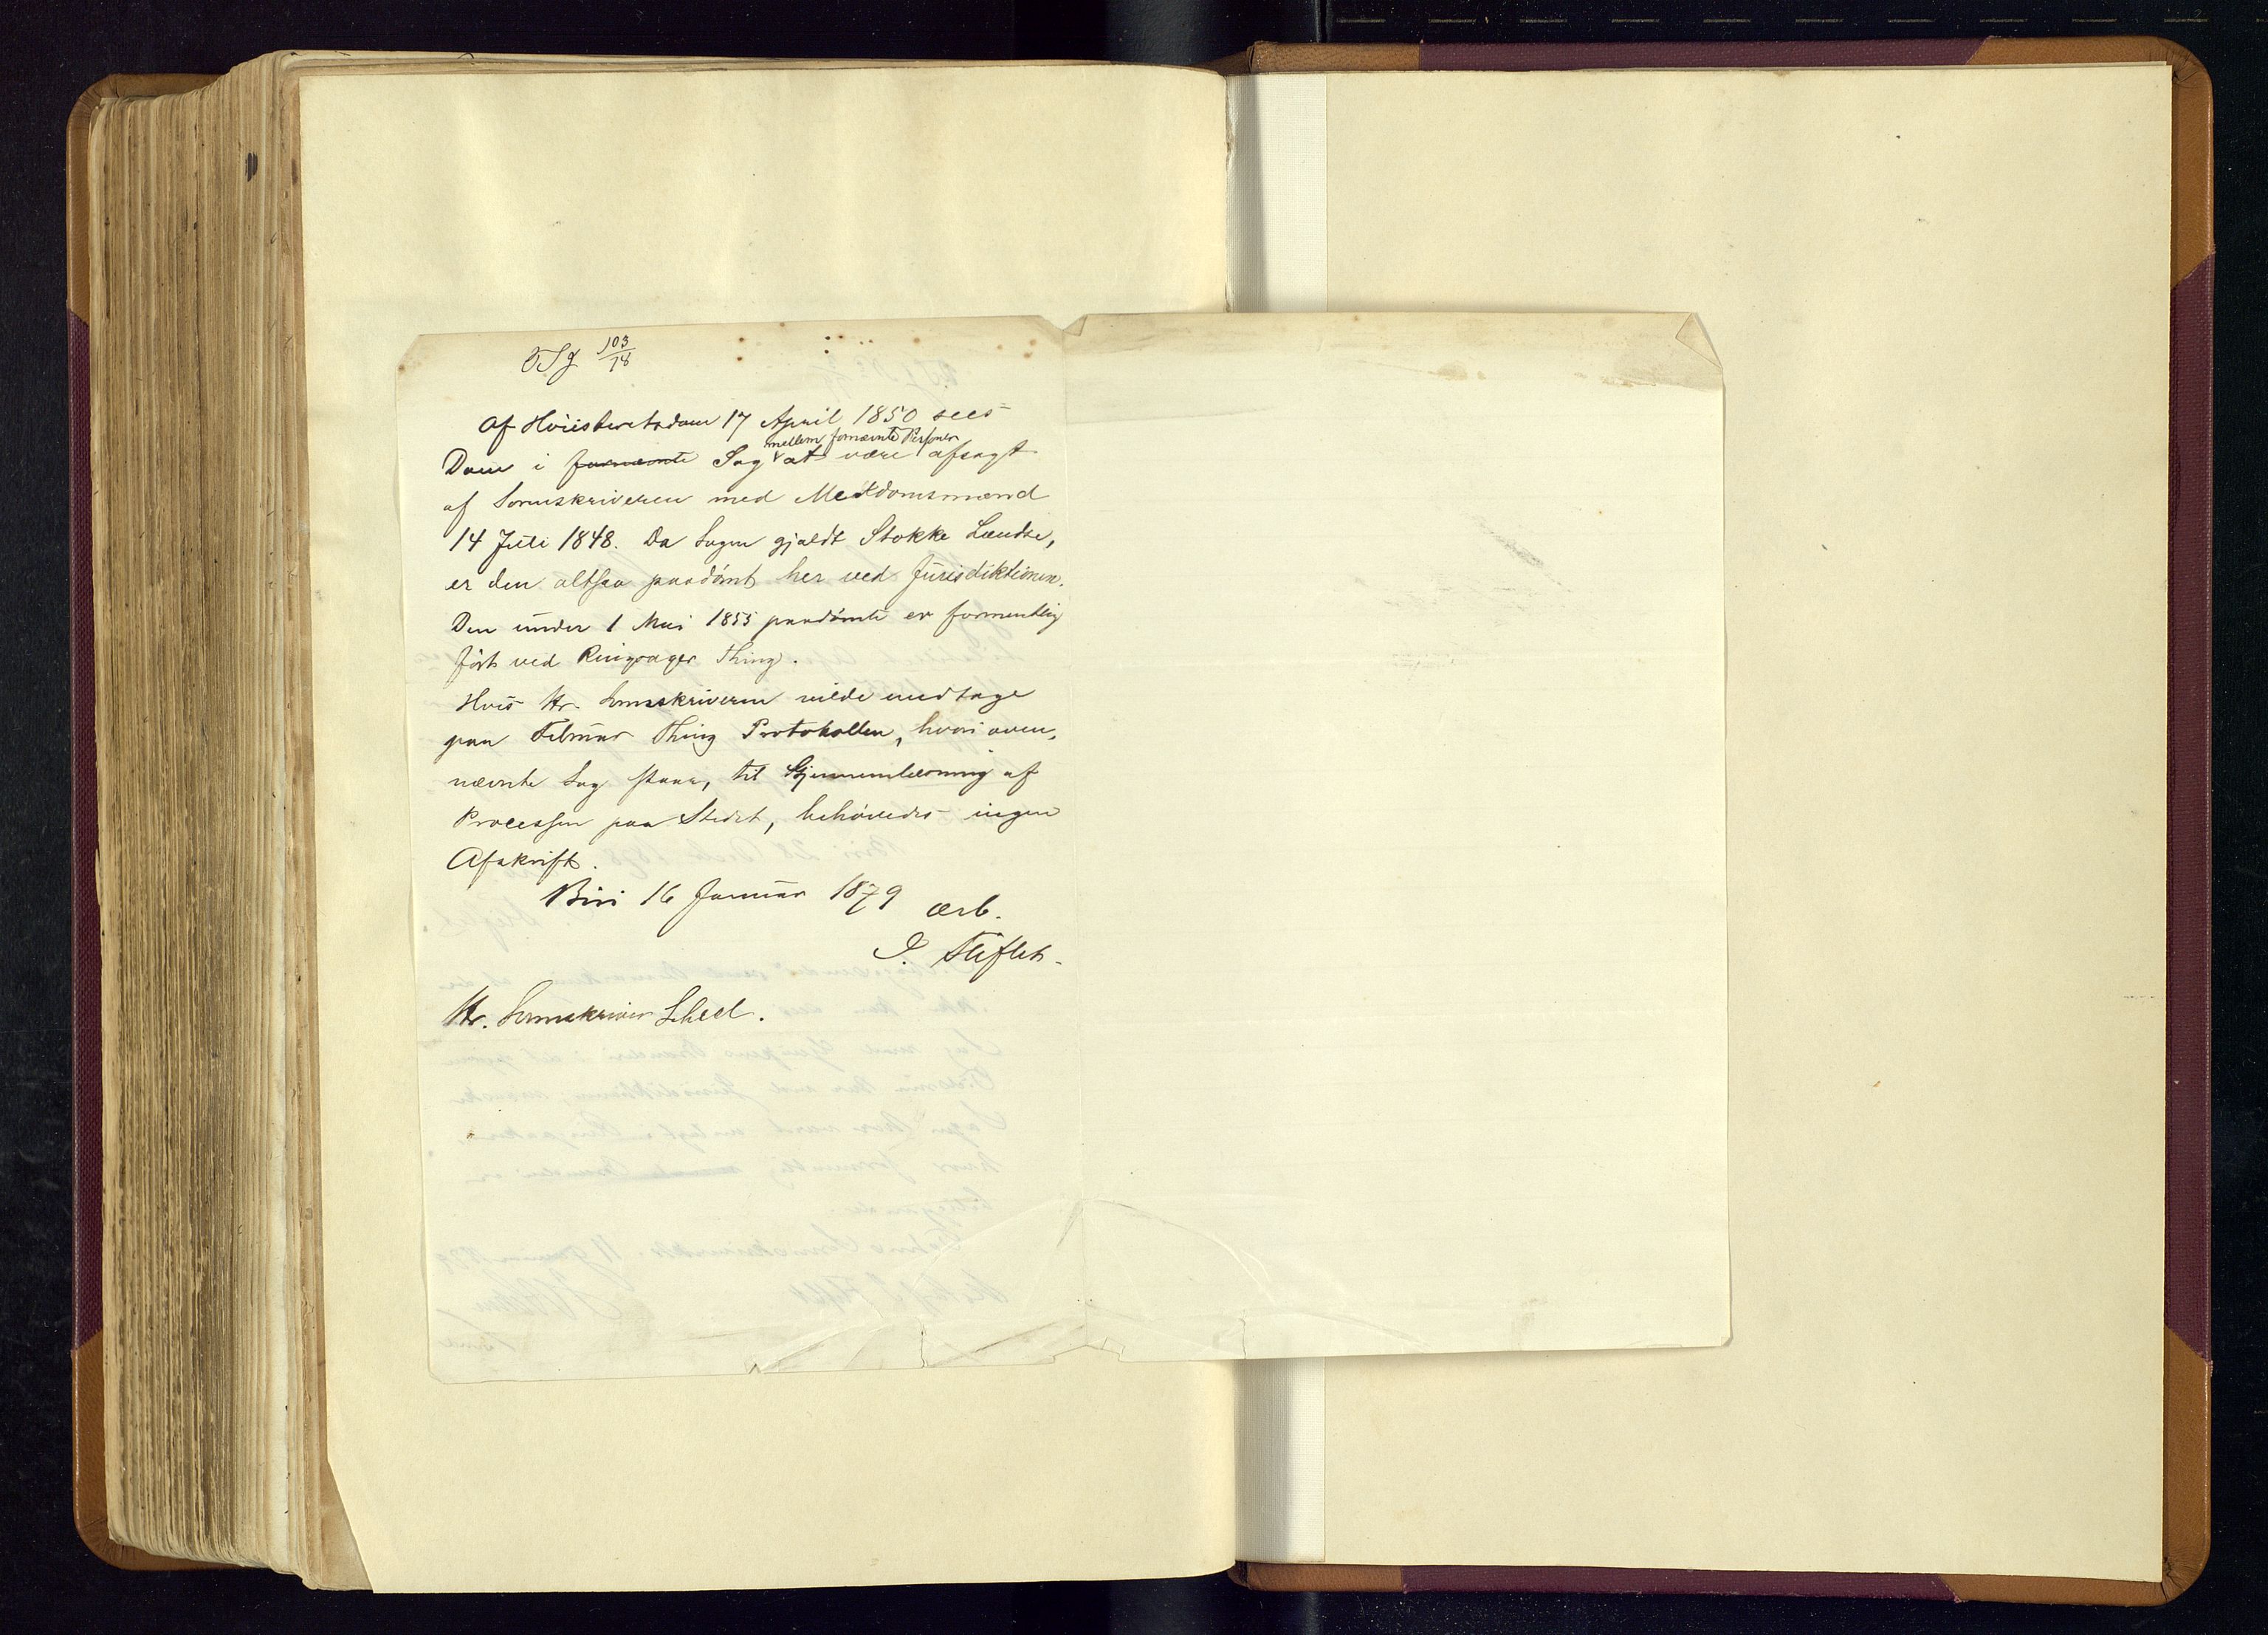 OSJ 103/78
Af Höiesteretsdom 17 April 1850 sees
mellem fornævnte Personer
Dom i fornævnte Sag at være afsagt
af Sorenskriveren med Meddomsmænd
14 Juli 1848. Da Sagen gjaldt Stokke Lændse,
er den altsaa paadömt her ved Jurisdiktionen.
Den under 1 Mai 1855 paadömte er formentlig
ført ved Ringsager Thing.
Hvis Hr. Sorenskriveren vilde medtage
paa Februar Thing Protokollen, hvori oven,
nævnte Sag staar, til Gjennemlæsning af
Processen paa Stedet, behövedes ingen
Afskrift.
Biri 16 Januar 1879
ærb.
Hr. Sorenskriver Scheel.